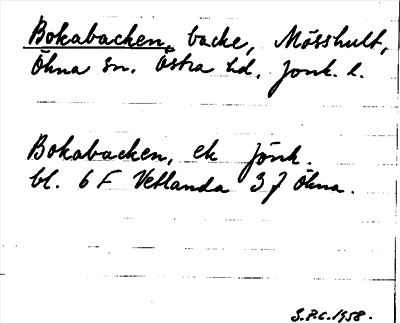 Bokabacken, backe, Mösshult,
Öhna sn. Östra hd. Jönk. l.
Bokabacken, ek Jönk.
bl. 6 F Vetlanda 3 f Öhna.
S.P.C. 1958.